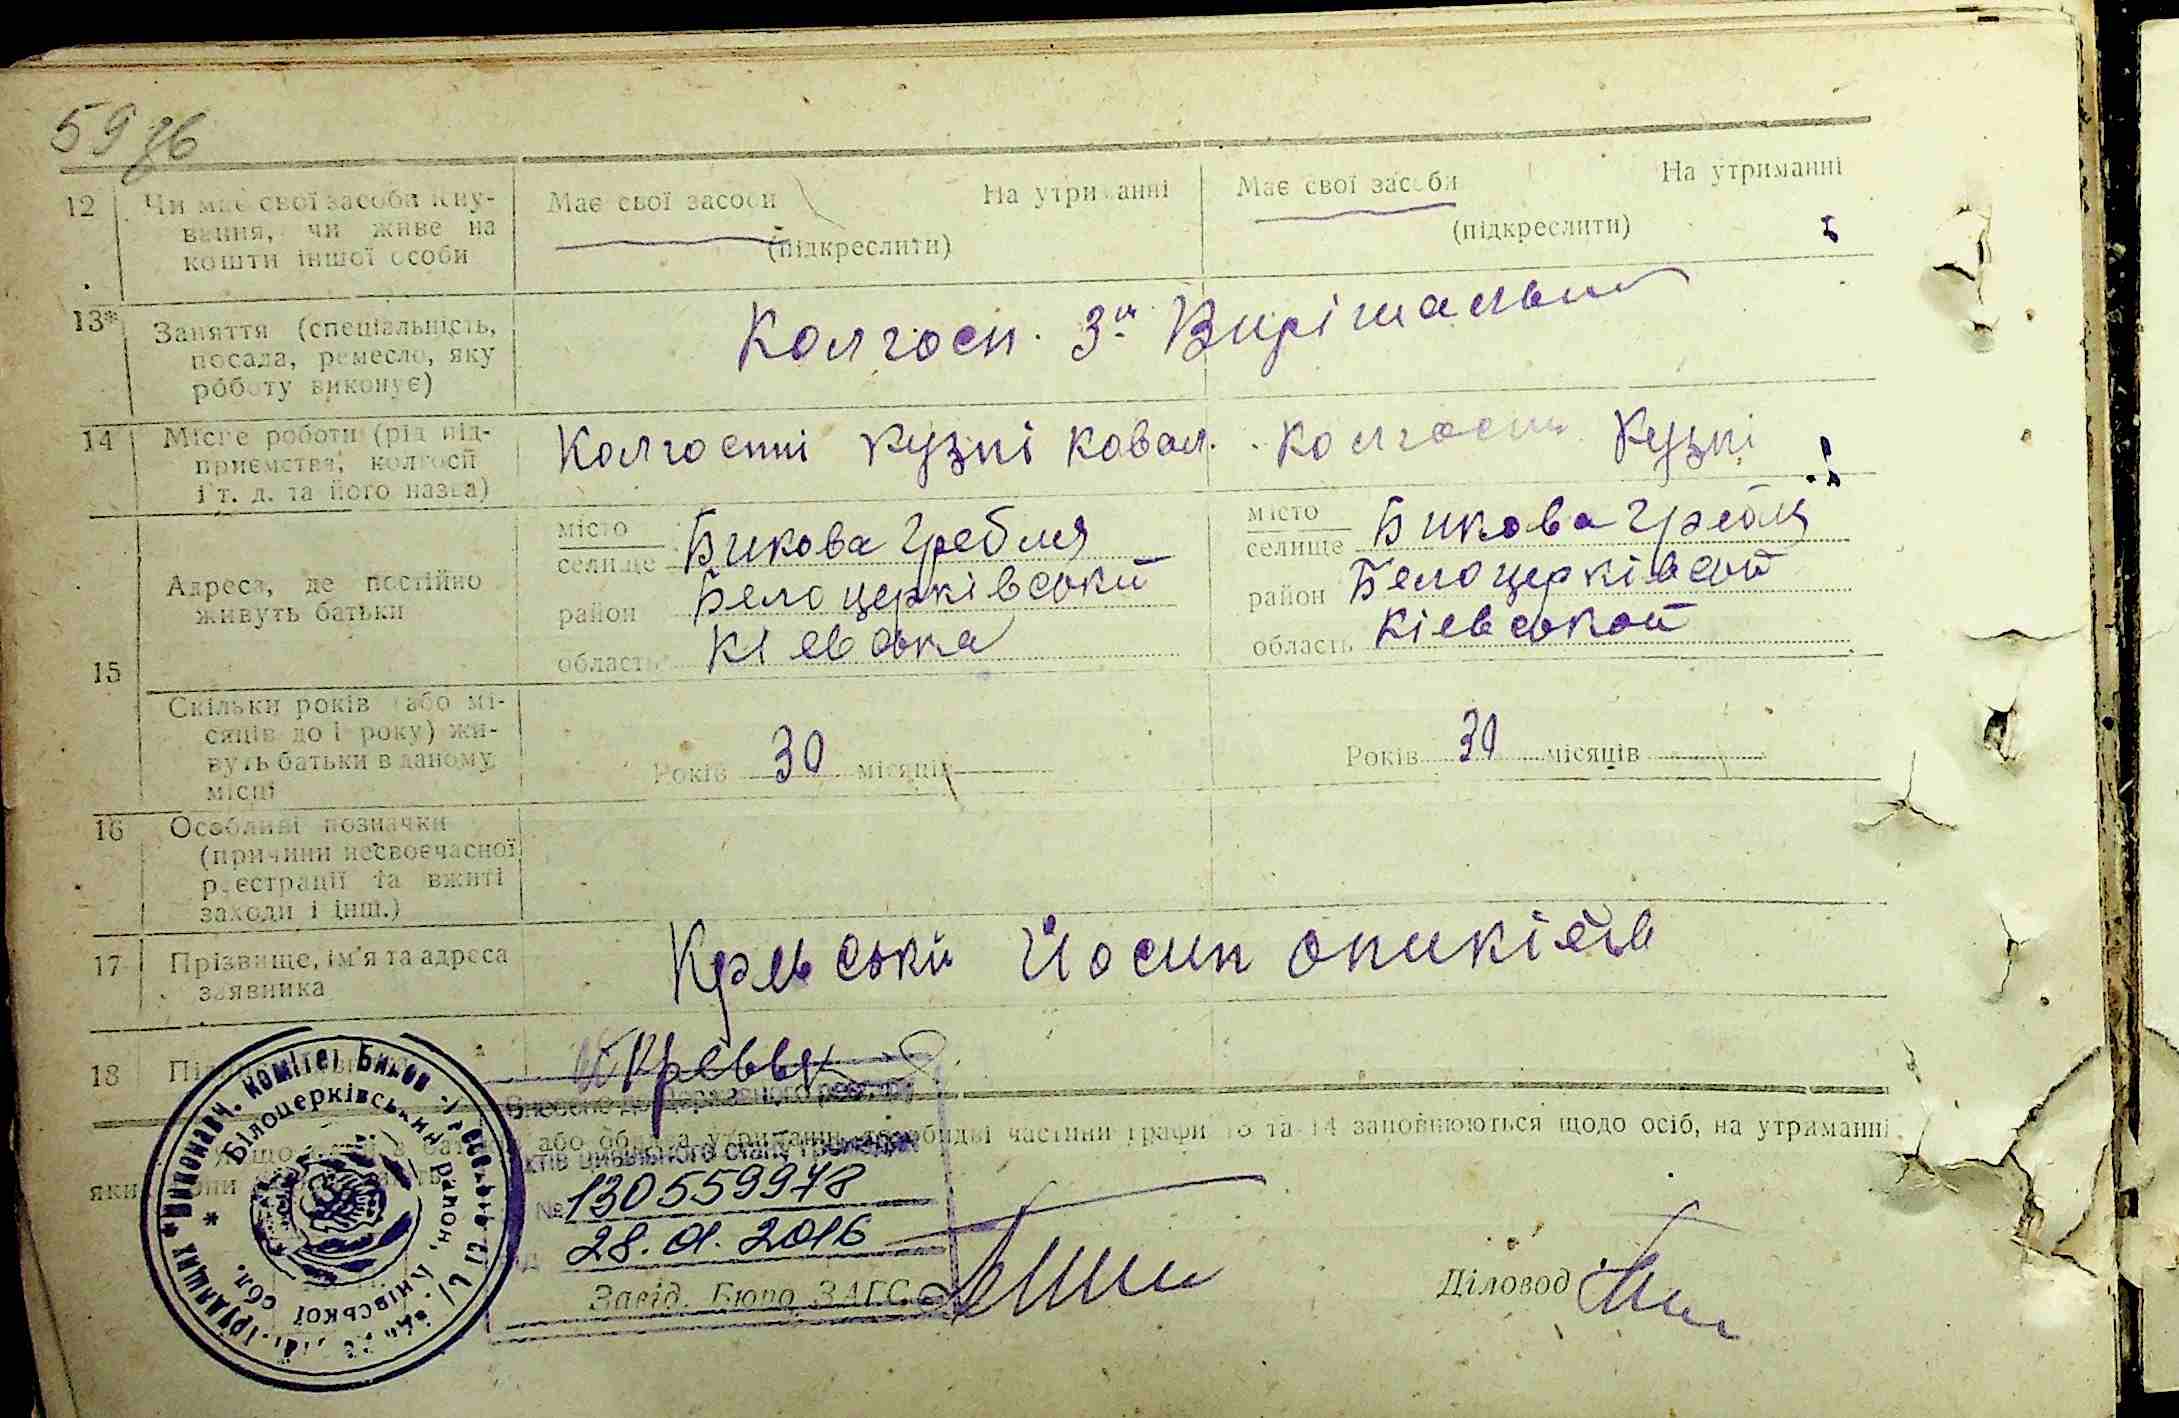 59 зв
12 Чи має свої засоби існу-
вання, чи живе на
кошти іншої особи
Має свої засоби На утриманні
(підкреслити)
Має свої засоби На утриманні
(підкреслити)
13* Заняття (спеціальність,
посада, ремесло, яку
роботу виконує)
Колгосп. 3й
14 Місце роботи (рід під-
приємства, колгосп
і т. д. та його назва)
Колгоспі Кузні Ковал.
Колгосп Кузні
15
Адреса, де постійно
живуть батьки
місто
селище Бикова Гребля
район Белоцерківськй
область Кіевська
місто
селище Бикова Гребля
район Белоцерківской
область Кіевськой
Скільки років (або мі-
сяців до 1 року) жи-
вуть батьки в даному
місці
Років 30 місяців
Років 30 місяців
16 Особливі позначки
(причини несвоєчасної
реєстрації та вжиті
заходи і інш.)
17 Прізвище, ім'я та адреса
заявника
Йосип
18
або обидва утриманні, то обидві частини графи 13 та 14 заповнюються щодо осіб, на утриманні
яких вони
Внесено до Державного реєстру
актів цивільного стану громадян
№ 130559978
від 28.01.2016
Завід. Бюро ЗАГС
Діловод
* Виконавч. комітет Биково-Гребельської с/ради деп. трудящих
* Білоцерківський район, Київської обл.